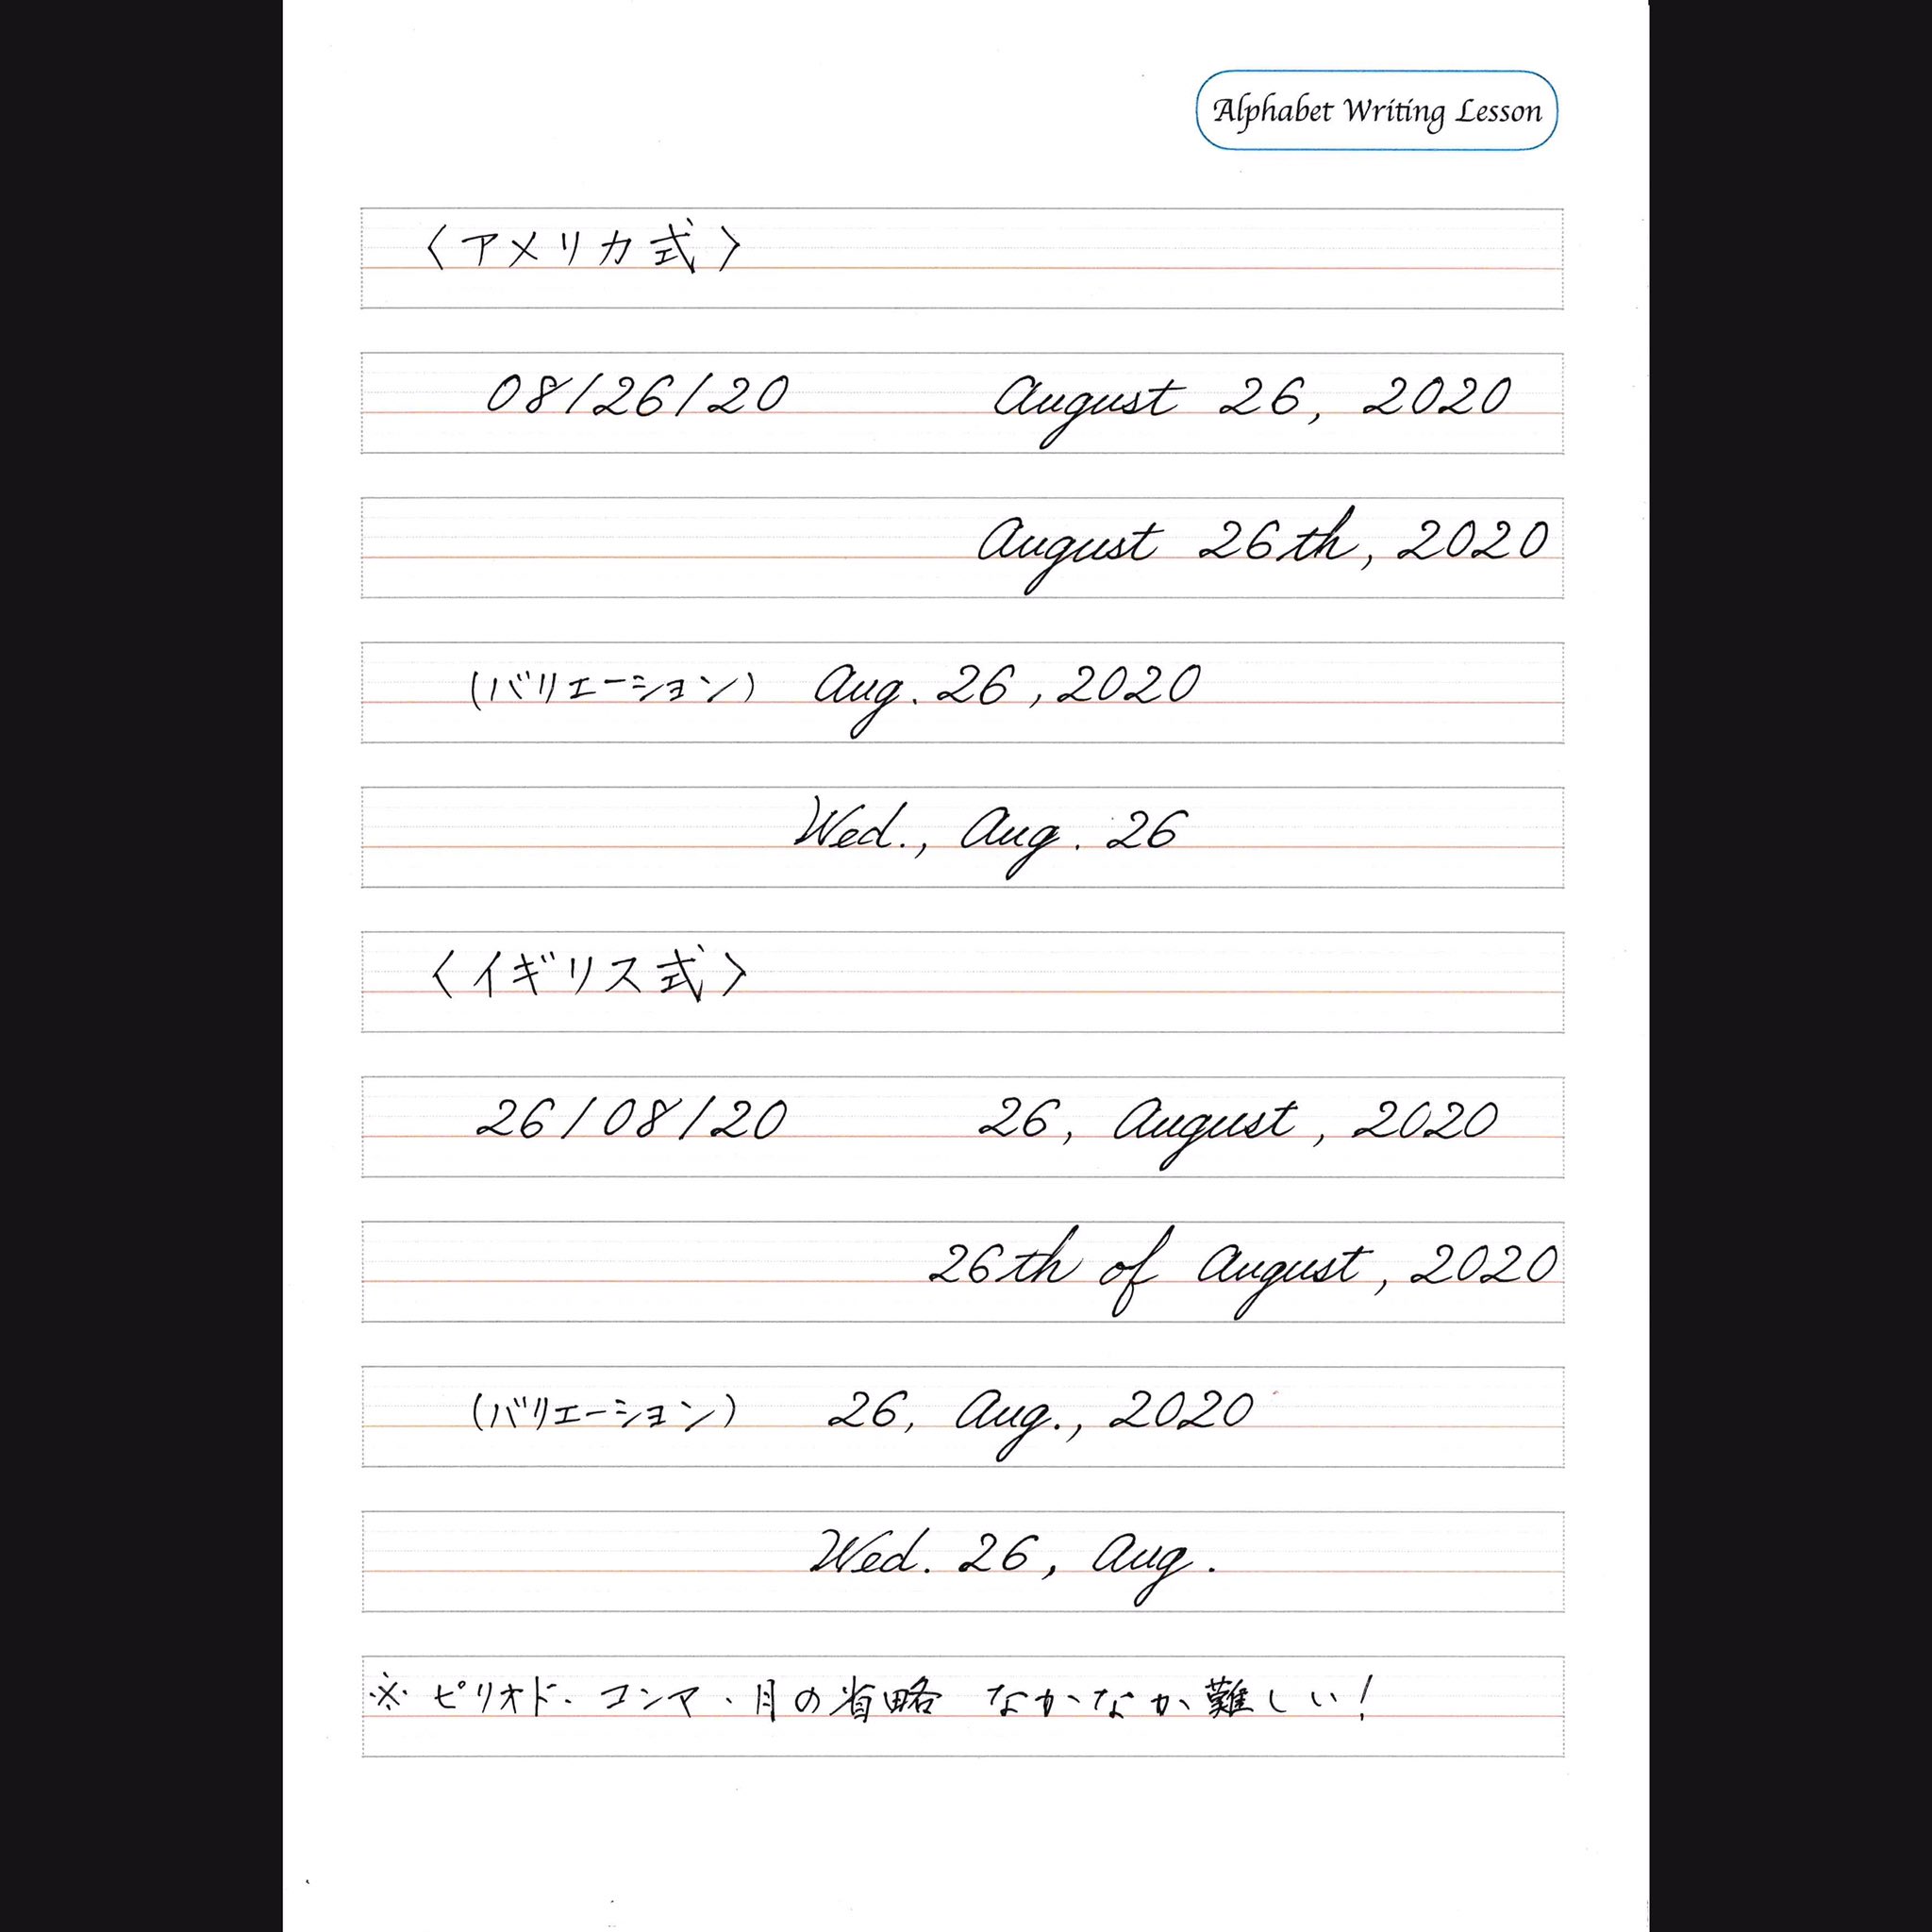 Alphabet Writing Lesson
〈アメリカ式〉
08/26/20 August 26, 2020
August 26th, 2020
(バリエーション) Aug. 26, 2020
Wed., Aug. 26
〈イギリス式〉
26/08/20 26, August, 2020
26th of August, 2020
(バリエーション) 26, Aug., 2020
Wed. 26, Aug.
※ピリオド、コンマ、月の省略 なかなか難しい!